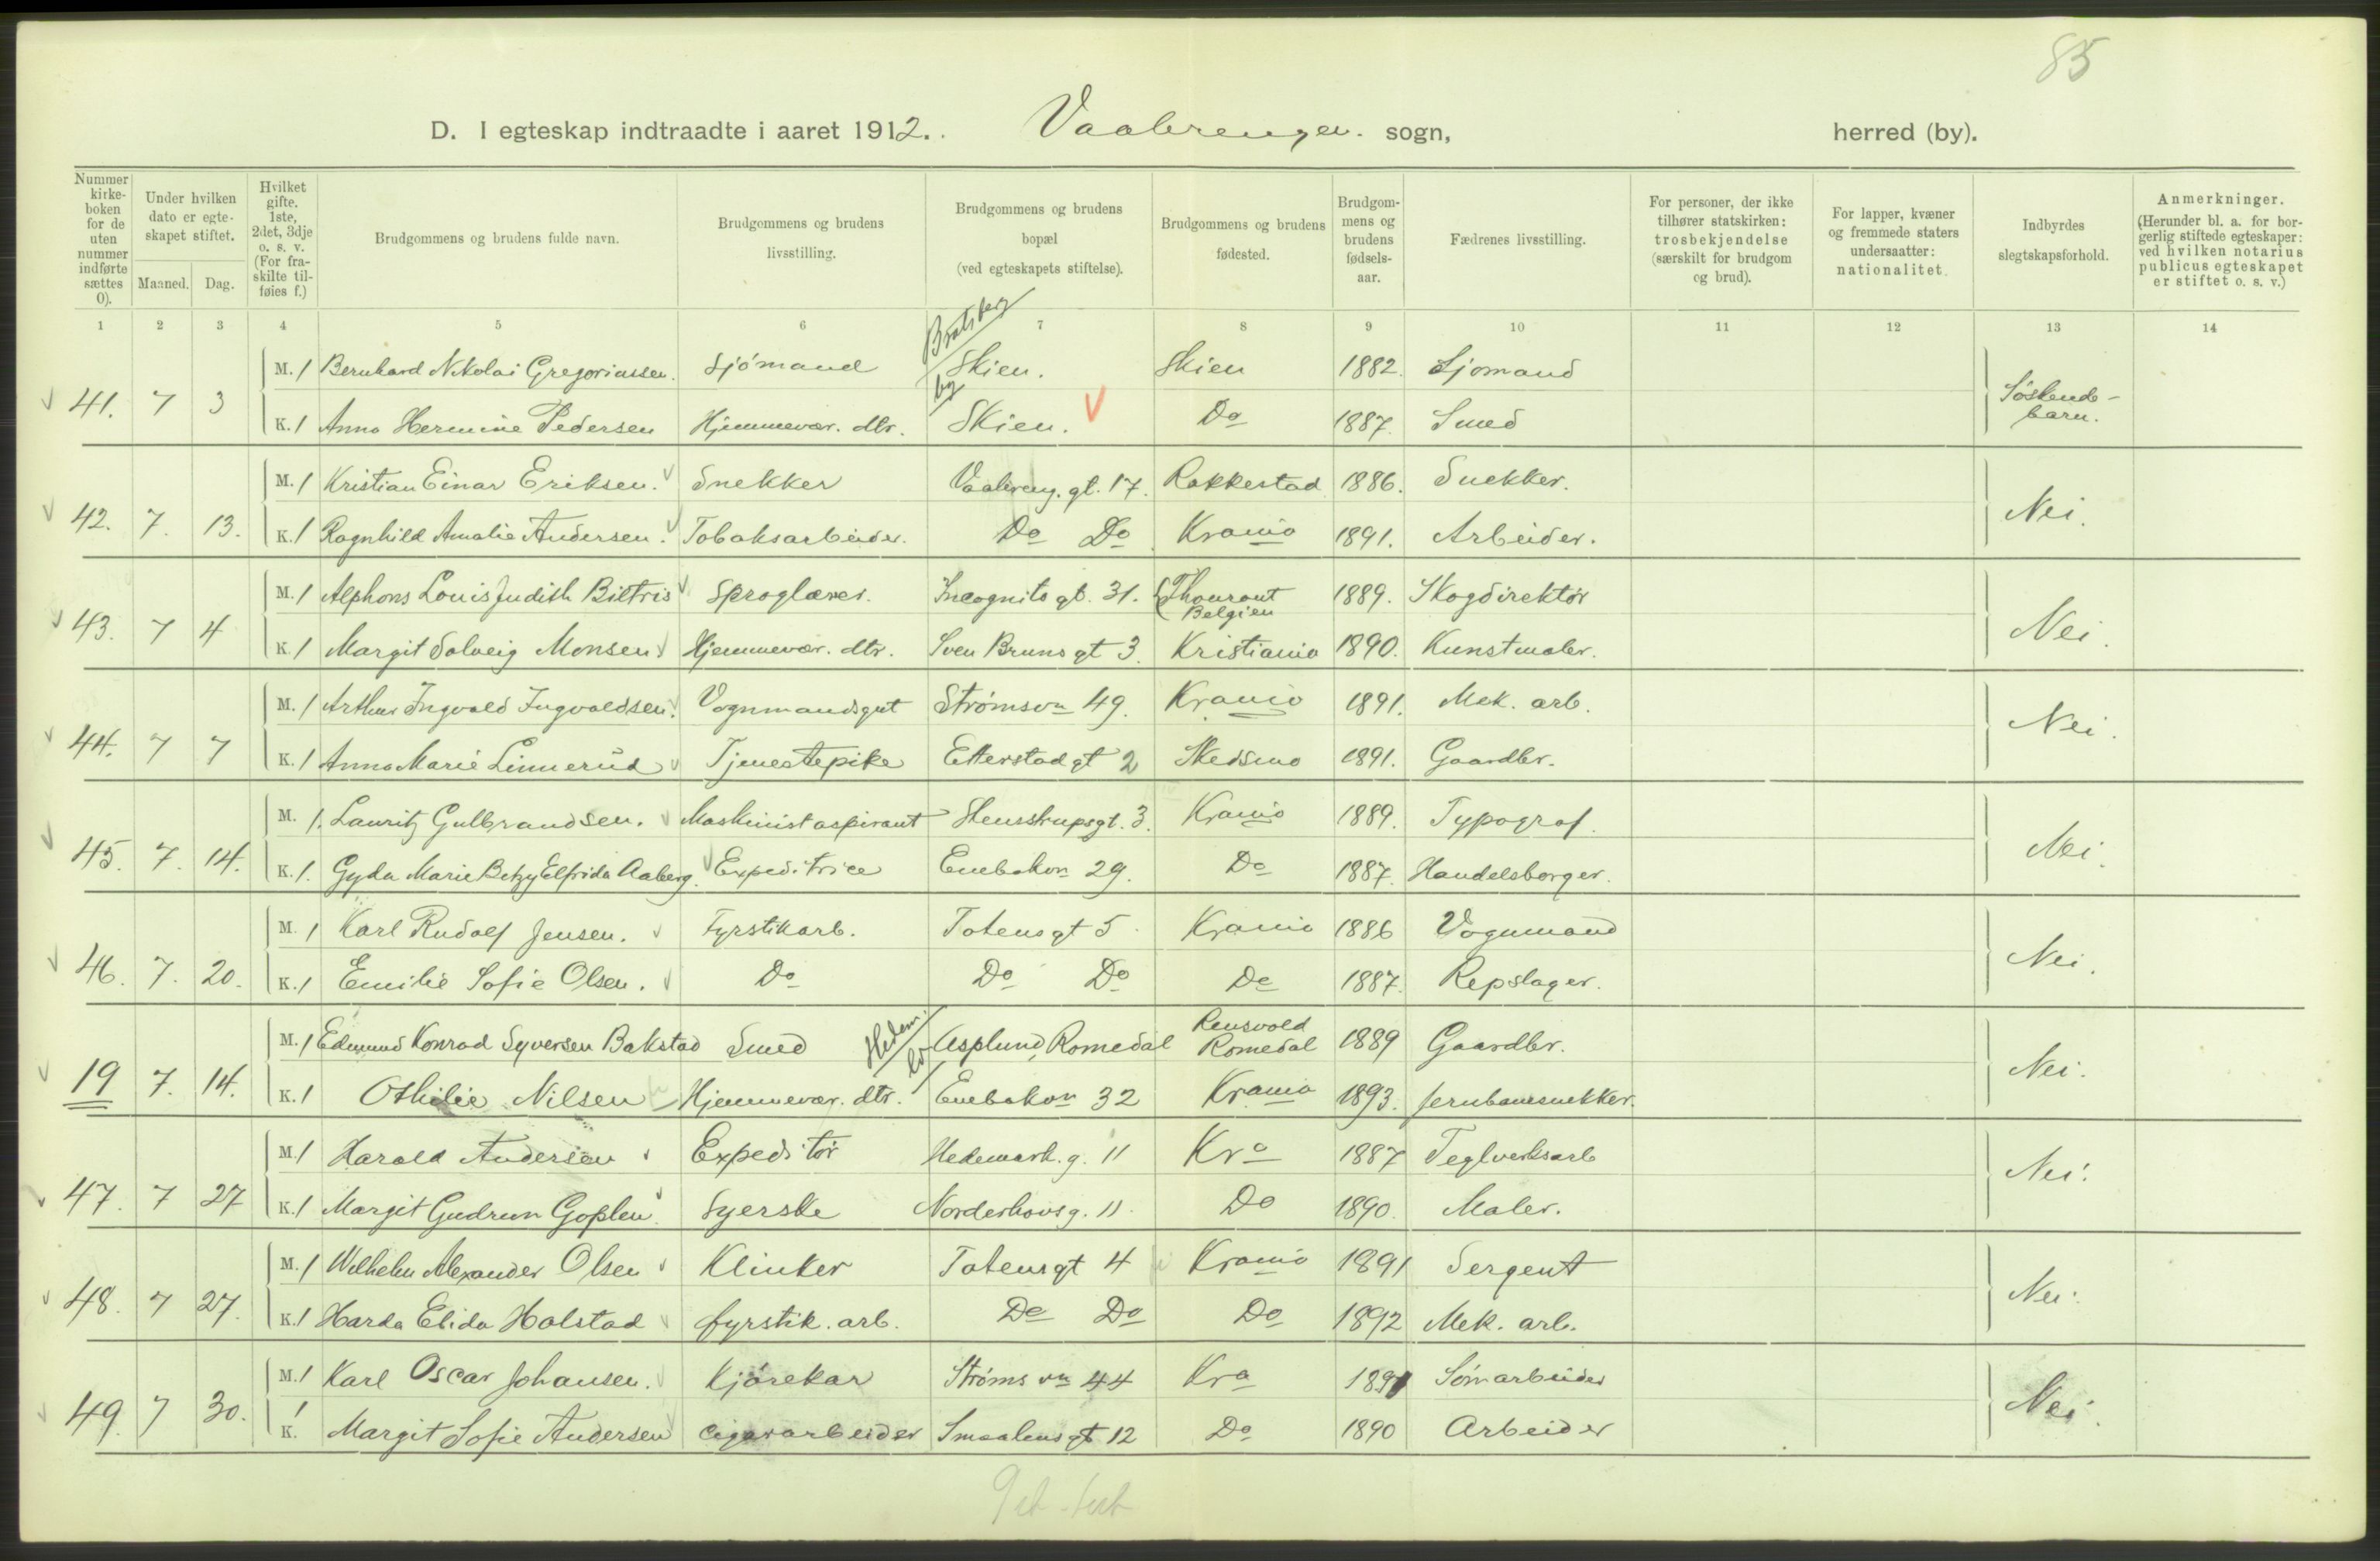 85
D. I egteskap indtraadte i aaret 1912. Vaalerengen. sogn, herred (by).
Nummer kirkeboken for de uten nummer indførte sættes 0).
Under hvilken dato er egteskapet stiftet.
Maaned. Dag.
Hvilket gifte. 1ste, 2det, 3dje o. s. v. (For fraskilte tilføies f.)
Brudgommens og brudens fulde navn.
Brudgommens og brudens livsstilling.
Brudgommens og brudens bopæl (ved egteskapets stiftelse).
Brudgommens og brudens fødested.
Brudgommens og brudens fødselsaar.
Fædrenes livsstilling.
For personer, der ikke tilhører statskirken: trosbekjendelse (særskilt for brudgom og brud).
For lapper, kvæner og fremmede staters undersaatter: nationalitet.
Indbyrdes slegtskapsforhold.
Anmerkninger. (Herunder bl. a. for borgerlig stiftede egteskaper: ved hvilken notarius publicus egteskapet er stiftet o. s. v.)
1 2 3 4 5 6 7 8 9 10 11 12 13 14
M. 1 Bernhard Nikolai Gregoriassen. Sjömand Bratsberg Skien. Skien 1882. Sjømand
41. 7 3 Søskendebarn.
K. 1 Anna Hermine Pedersen Hjemmevær. dtr. by Skien. Do 1887. Smed
M. 1 Kristian Einar Eriksen. Snekker Vaalreng. gt. 17. Rakkestad 1886. Snekker.
42. 7. 13. Nei.
K. 1 Ragnhild Amalie Andersen. Tobaksarbeider. Do Do Krania 1891. Arbeider.
M. 1 Alphons Louis Judith Biltris Sproglærer. Incognito gt. 31. Thourout Belgien 1889. Skogdirektör
43. 7 4 Nei.
K. 1 Margit Solveig Monsen Hjemmevær. dtr. Sven Bruns gt 3. Kristiania 1890. Kunstmaler.
M. 1 Arthur Ingvald Ingvaldsen. Vognmandsgut Strømsvn 49. Krania 1891. Mek. arb.
44. 7 7 Nei.
K. 1 Anna Marie Linnerud Tjenestepike Etterstadgt 2 Skedsmo 1891. Gaardbr.
M. 1. Lauritz Gulbrandsen. Maskinistaspirant Stensstrupsgt. 3. Krania 1889. Typograf.
45. 7. 14. Nei.
K. 1. Gyda Marie Betzy Elfrida Aaberg. Expeditrice Enebakvn 29. Do 1887. Handelsborger.
M. 1 Karl Rudolf Jensen. Fyrstikarb. Totensgt 5 Krania 1886 Vognmand
46. 7. 20. Nei.
K. 1 Emilie Sofie Olsen. Do Do Do Do 1887. Repslager.
M. 1 Edmund Konrad Syversen Bakstad Smed Hedem. Asplund, Romedal Romedal 1889 Gaardbr.
19 7. 14. Nei.
K. 1 Othilie Nilsen Hjemmevær. dtr. Enebakvn 32 Krania 1893. Jernbanesnekker.
M. 1 Harald Andersen Expeditör Hedemark. g. 11 Kra 1887 Teglverksarb
47. 7 27 Nei.
K. 1 Margit Gudrun Goplen. Syerske Norderhovsg. 11. Do 1890. Maler.
M. 1 Wilhelm Alexander Olsen Klinker Totensgt 4 Krania 1891 Sergent
48. 7 27. Nei.
K. 1 Harda Elida Halstad fyrstik. arb. Do Do Do 1892 Mek. arb.
M. 1 Karl Oscar Johansen. Kjörekar Strøms vn 44 Kra 1891 Sömarbeider
49. 7 30. Nei.
K. 1 Margit Sofie Andersen cigararbeider Smaalensgt 12 Do 1890 Arbeider